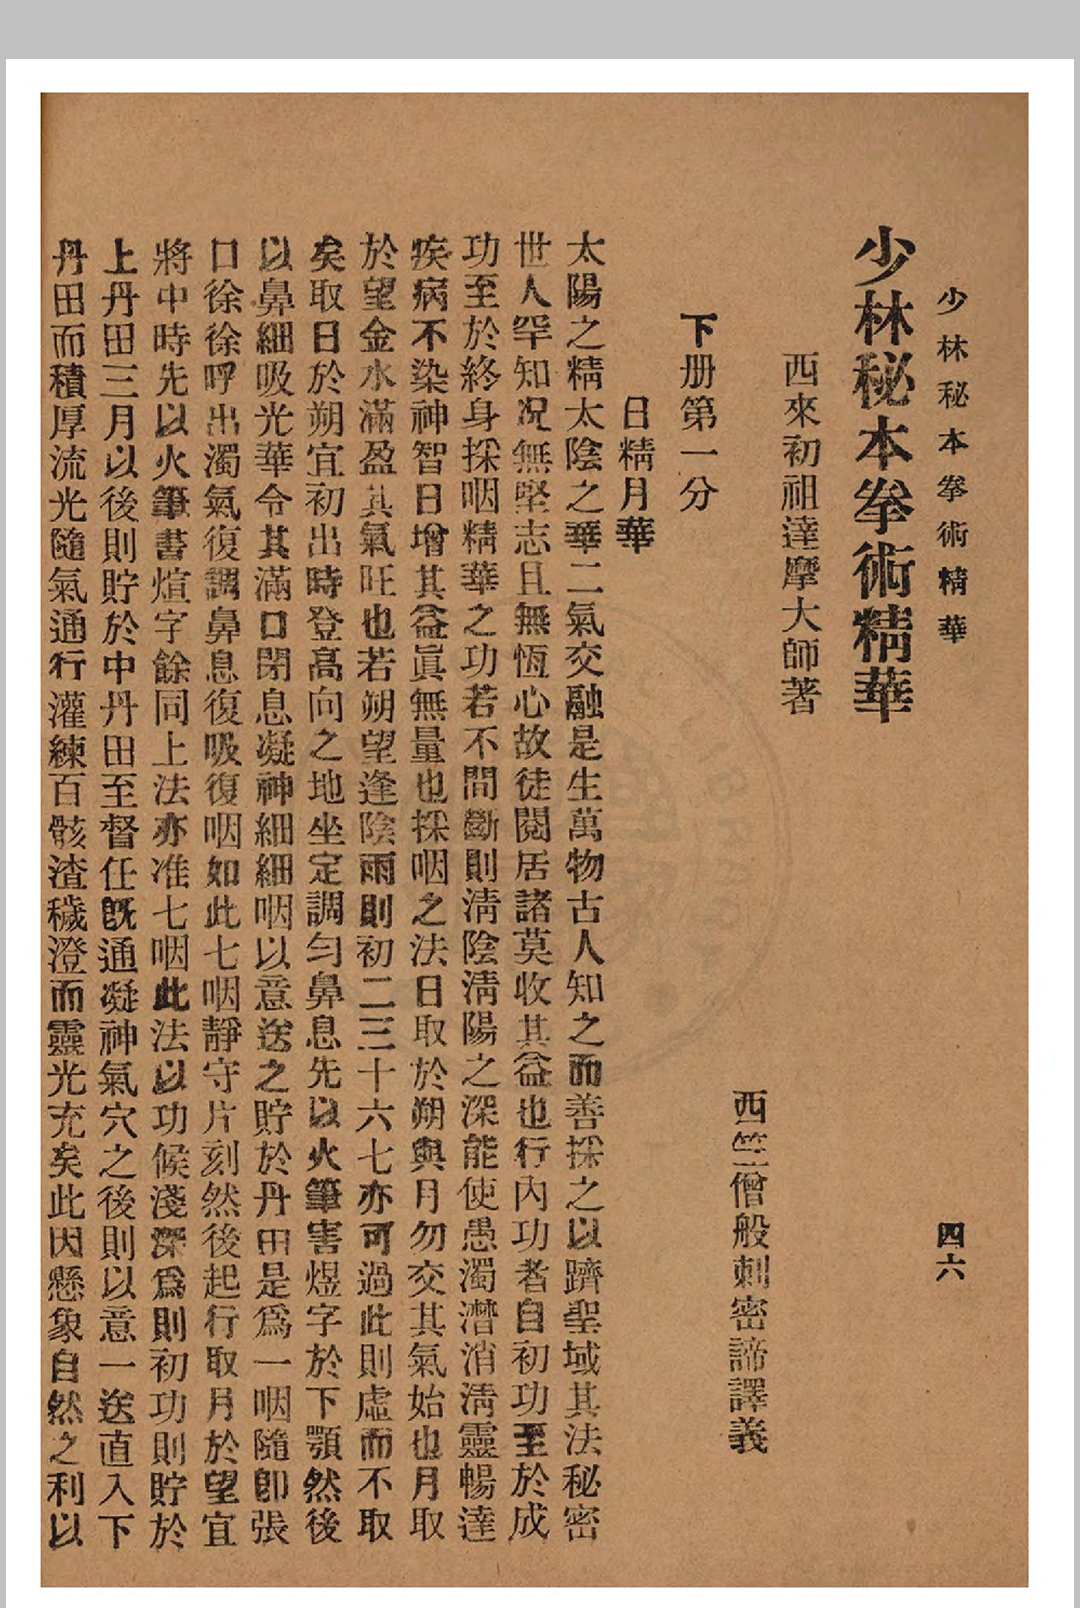 少林秘本拳術精華
四六
少林秘本拳術精華
西來初祖達摩大師著
西竺僧般刺密諦譯義
下册第一分
日精月華
太陽之精太陰之華二氣交融是生萬物古人知之而善採之以躋聖域其法秘密
世人罕知况無堅志且無恆心故徒閱居諸莫收其益也行內功者自初功至於成
功至於終身採咽精華之功若不間斷則淸陰淸陽之深能使愚濁濳消淸靈暢達
疾病不染神智日增其益眞無量也採咽之法日取於朔與月勿交其氣始也月取
於望金水滿盈其氣旺也若朔望逢陰雨則初二三十六七亦可過此則虛而不取
矣取日於朔宜初出時登高向之地坐定調勻鼻息先以火筆害煜字於下顎然後
以鼻細吸光華令其滿口閉息凝神細細咽以意送之貯於丹田是爲一咽隨卽張
口徐徐呼出濁氣復調鼻息復吸復咽如此七咽靜守片刻然後起行取月於望宜
將中時先以火筆書煊字餘同上法亦准七咽此法以功候淺深爲則初功則貯於
上丹田三月以後則貯於中丹田至督任旣通凝神氣穴之後則以意一送直入下
丹田而積厚流光隨氣通行灌練百骸渣穢澄而靈光充矣此因懸象自然之利以